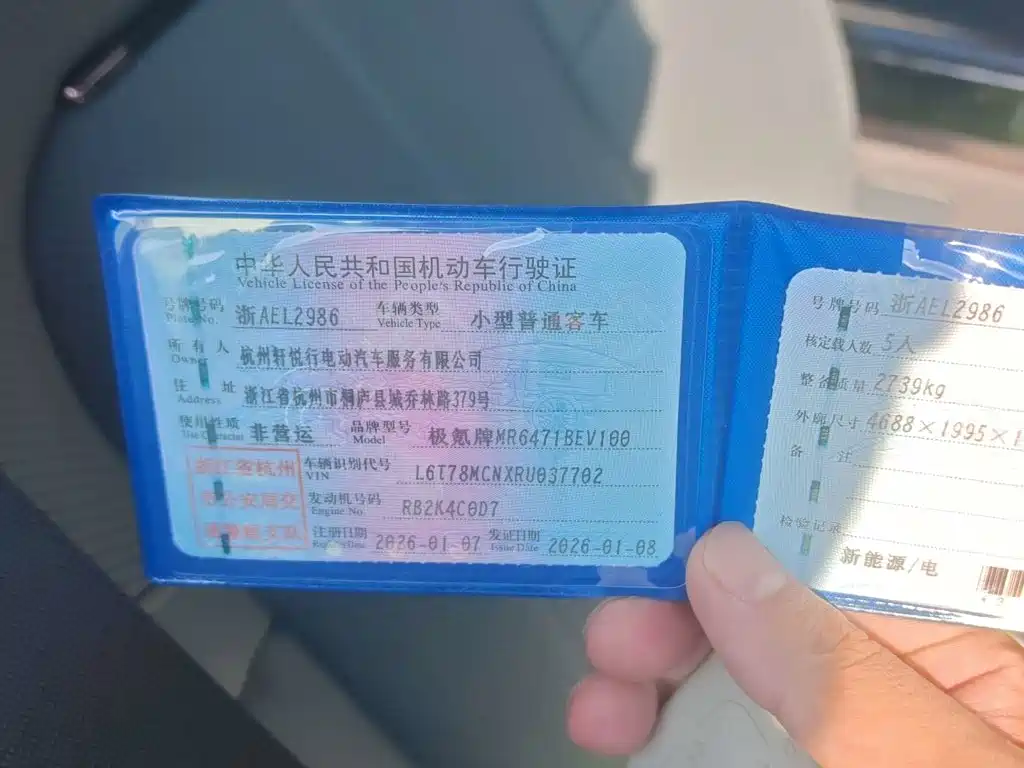 中华人民共和国机动车行驶证
Vehicle License of the People's Republic of China
号牌号码 浙AEL2986 车辆类型 小型普通客车
Plate No. Vehicle Type
所有人 杭州轩悦行电动汽车服务有限公司
Owner
住址 浙江省杭州市桐庐县城乔林路379号
Address
使用性质 非营运 品牌型号 极氪牌MR6471BEV100
Use Character Model
车辆识别代号 L6T78MCNXRU037702
VIN
发动机号码 RB2K4C0D7
Engine No.
注册日期 2026-01-07 发证日期 2026-01-08
Register Date Issue Date
浙江省杭州
市公安局交
通警察支队
号牌号码 浙AEL2986
核定载人数 5人
整备质量 2739kg
外廓尺寸 4688×1995×1
备注
检验记录
新能源/电